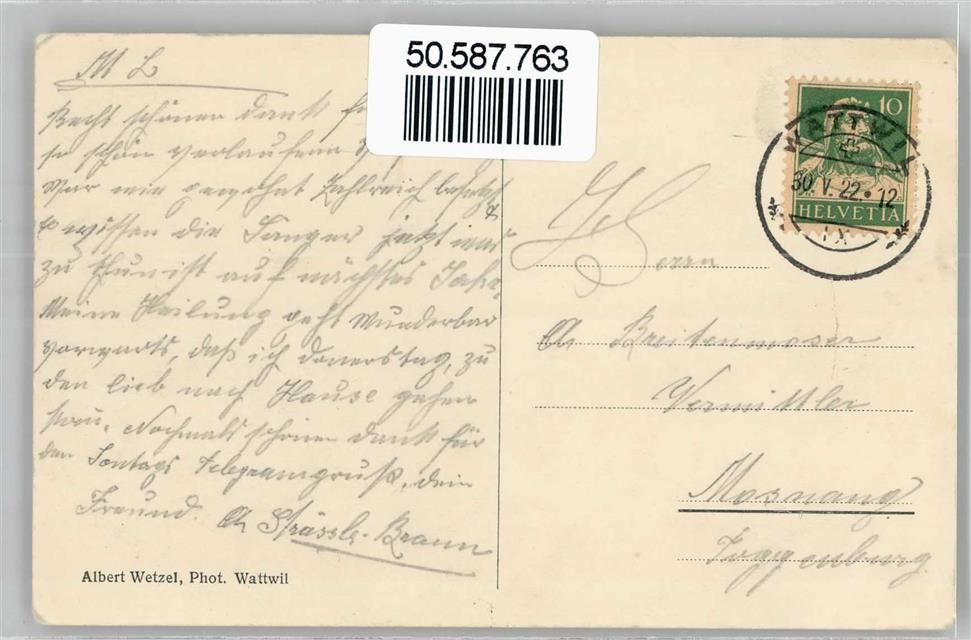 50.587.763
M L
Recht schönen dank
so schön verlaufenen
war wie gewohnt Zahlreich besetzt
& wissen die Sänger jetzt was
zu thun ist auf nächstes Jahr,
Meine Heilung geht Wunderbar
vorwarts, daß ich donerstag, zu
den lieb nach Hause gehen
kann. Nochmals schönen dank für
den Sontags Telegramgruß, dein
Freund. A Strässle-Braun
Albert Wetzel, Phot. Wattwil
10
HELVETIA
WATTWIL
30.V.22.12
IX
Herrn
A Breitenmoser
Vermittler
Mosnang
Toggenburg